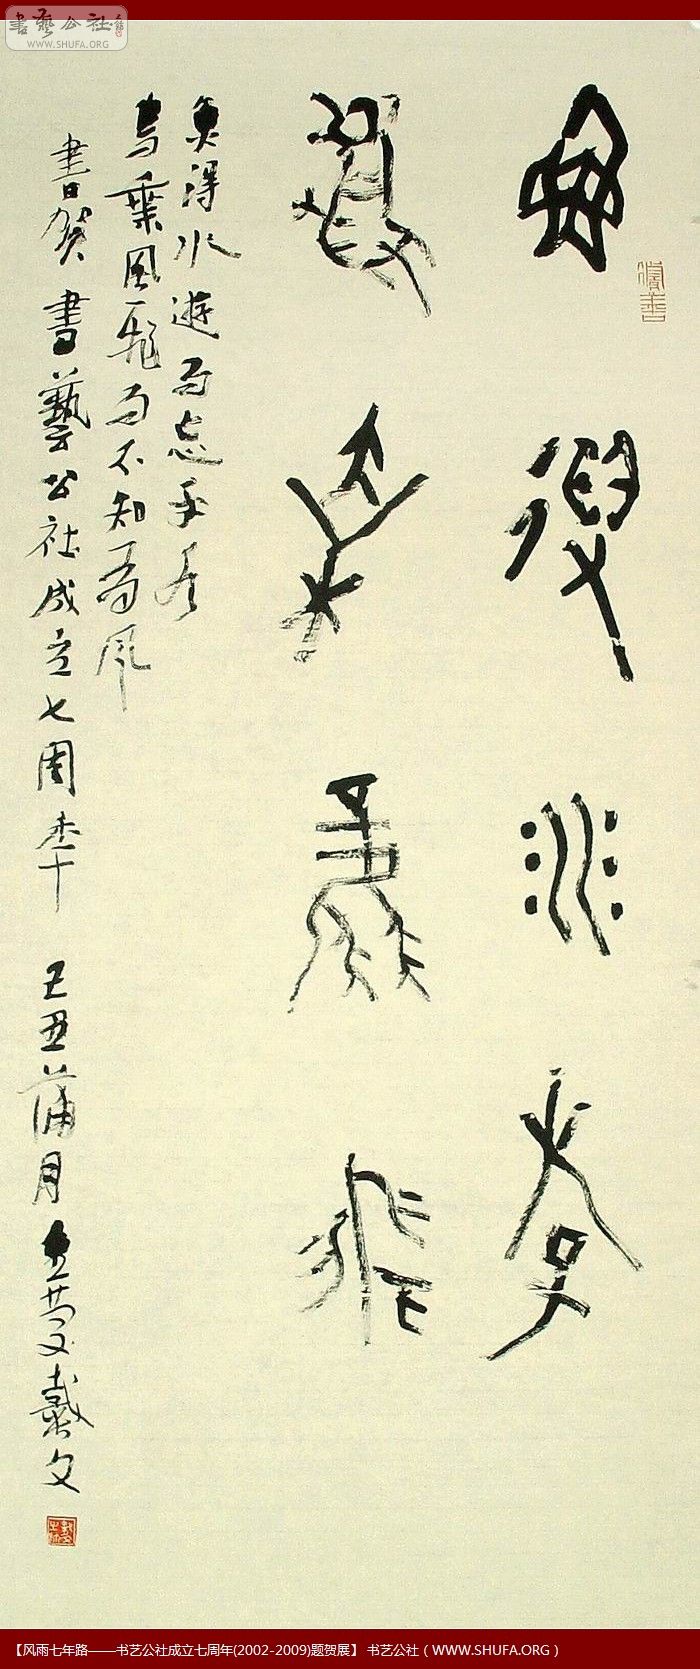 書藝公社
WWW.SHUFA.ORG
魚得水遊
鳥乘風飛
魚得水遊而忘乎水
鳥乘風飛而不知有風
書賀書藝公社成立七周年 己丑蒲月 戴文
【风雨七年路——书艺公社成立七周年(2002-2009)题贺展】 书艺公社（WWW.SHUFA.ORG）